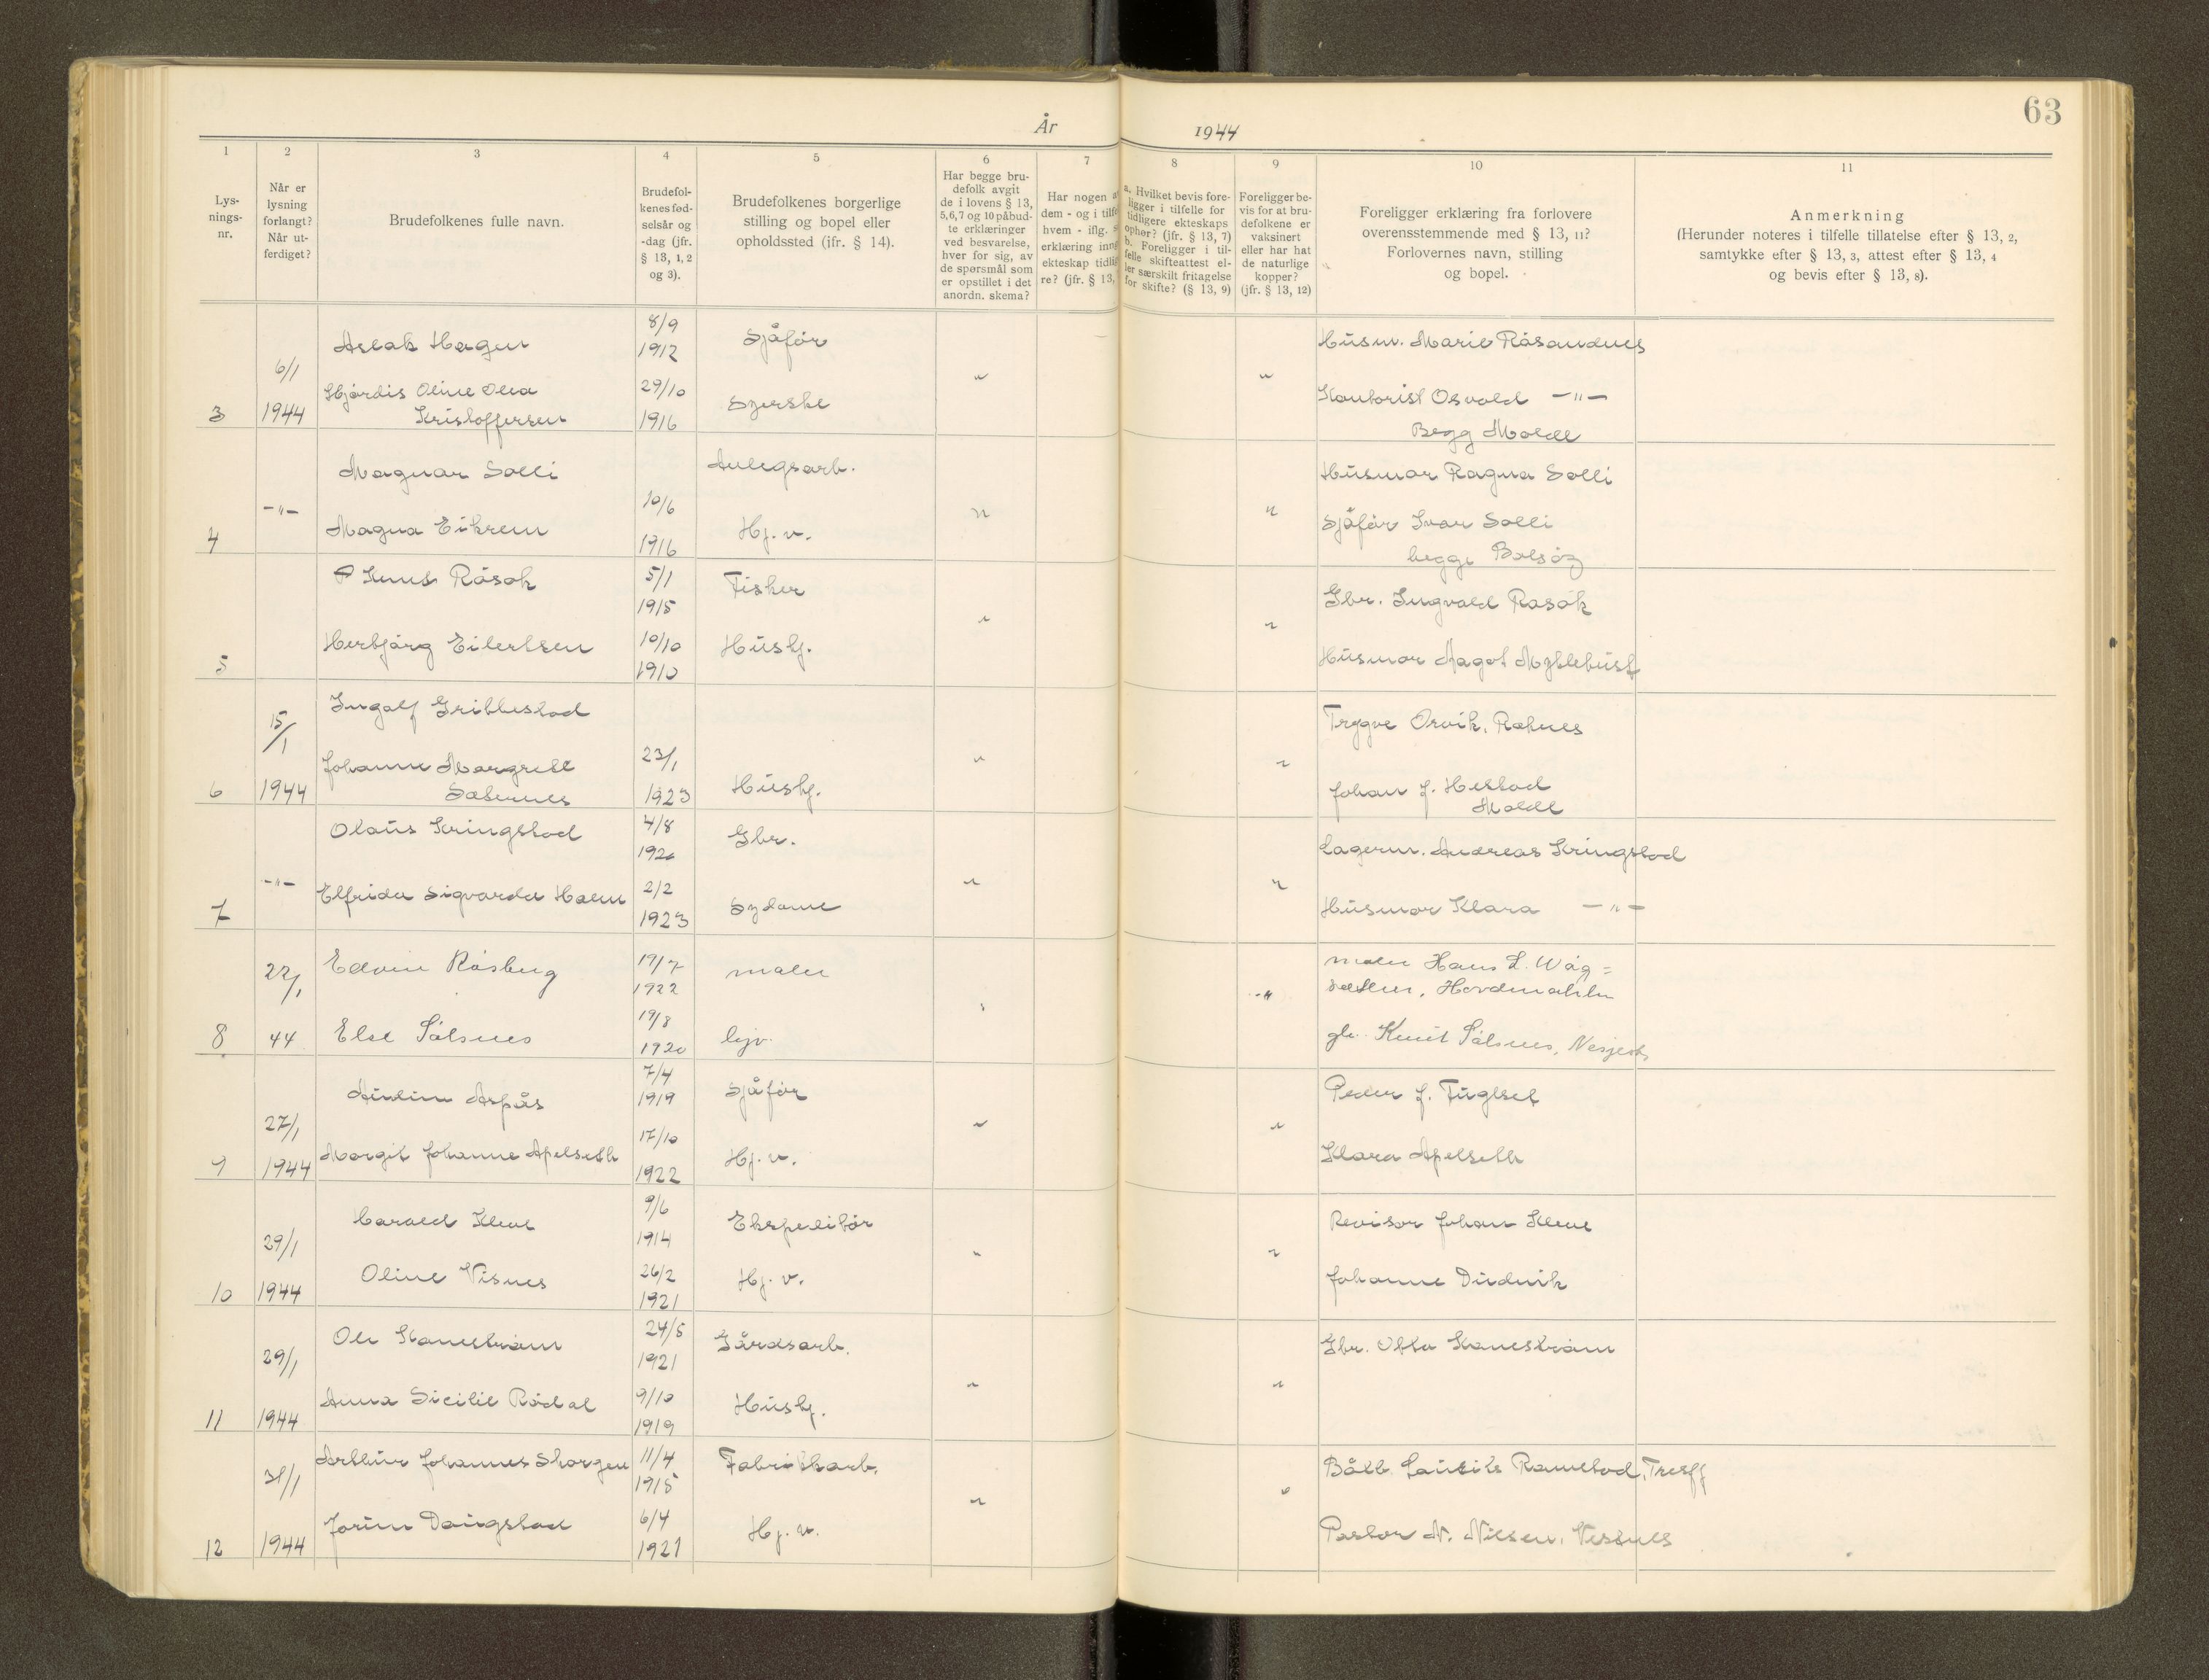 63
År 1944
1 2 3 4 5 6 7 8 9 10 11
Lys-
nings-
nr.
Når er
lysning
forlangt?
Når ut-
ferdiget?
Brudefolkenes fulle navn.
Brudefol-
kenes fød-
selsår og
-dag (jfr.
§ 13, 1, 2
og 3).
Brudefolkenes borgerlige
stilling og bopel eller
opholdssted (jfr. § 14).
Har begge bru-
defolk avgit
de i lovens § 13,
5, 6, 7 og 10 påbud-
te erklæringer
ved besvarelse,
hver for sig, av
de spørsmål som
er opstillet i det
anordn. skema?
Har nogen a
dem - og i tilfe
hvem - iflg.
erklæring inng
ekteskap tidli
re? (jfr. § 13,
a. Hvilket bevis fore-
ligger i tilfelle for
tidligere ekteskaps
ophør? (jfr. § 13, 7)
b. Foreligger i til-
felle skifteattest el-
ler særskilt fritagelse
for skifte? (§ 13, 9)
Foreligger be-
vis for at bru-
defolkene er
vaksinert
eller har hat
de naturlige
kopper?
(jfr. § 13, 12)
Foreligger erklæring fra forlovere
overensstemmende med § 13, 11?
Forlovernes navn, stilling
og bopel.
Anmerkning
(Herunder noteres i tilfelle tillatelse efter § 13, 2,
samtykke efter § 13, 3, attest efter § 13, 4
og bevis efter § 13, 8).
3 6/1 1944
Aslak Hagen 8/9 1912 Sjåfør
Hjørdis Oline Olea
Kristoffersen 29/10 1916 Syerske
" "
Husm. Marie Røsandnes
Kontorist Osvald -"-
Begg Molde
4 -"-
Magnar Solli Anlegsarb.
Magna Eikrem 10/6 1916 Hj. v.
" "
Husmor Ragna Solli
Sjåfør Ivar Solli
begge Bolsøy
5
Knut Røsok 5/1 1915 Fisker
Herbjørg Eilertsen 10/10 1910 Hushj.
" "
Gbr. Ingvald Røsok
Husmor Aagot Myklebust
6 15/1 1944
Ingolf Gribbestad
Johanne Margrete
Salsnes 23/1 1923 Hushj.
" "
Trygve Orvik, Raknes
Johan J. Hestad
Molde
7 -"-
Olaus Kringstad 4/8 1920 Gbr.
Elfrida Sigvarda Holm 2/2 1923 Sydame
" "
Lagerm. Andreas Kringstad
Husmor Klara -"-
8 22/1 44
Edvin Røsberg 19/7 1922 maler
Else Sølsnes 19/8 1920 hjv.
-"
maler Hans L. Wåg=
Hovdenakken
gbr. Knut Sølsnes, Nesjest.
9 27/1 1944
Audun Aspås 7/4 1919 Sjåfør
Margit Johanne Apelseth 17/10 1922 Hj. v.
" "
Peder J. Fuglset
Klara Apelseth
10 29/1 1944
Harald Kleve 9/6 1914 Ekspeditør
Oline Visnes 26/2 1921 Hj. v.
" "
Revisor Johan Kleve
JohanneÜndvik
11 29/1 1944
Ole Kanestrøm 24/5 1921 Gårdsarb.
Anna Sicilie Rødal 9/10 1919 Hushj.
" "
Gbr. Otto Kanestrøm
12 31/1 1944
Arthur Johannes Skorgen 11/4 1915 Fabrikkarb.
Jorunn Daugstad 6/4 1921 Hj. v.
" "
Båtb. Lauritz Ramstad, Tresfj
Pastor N. Nilsen, Vestnes